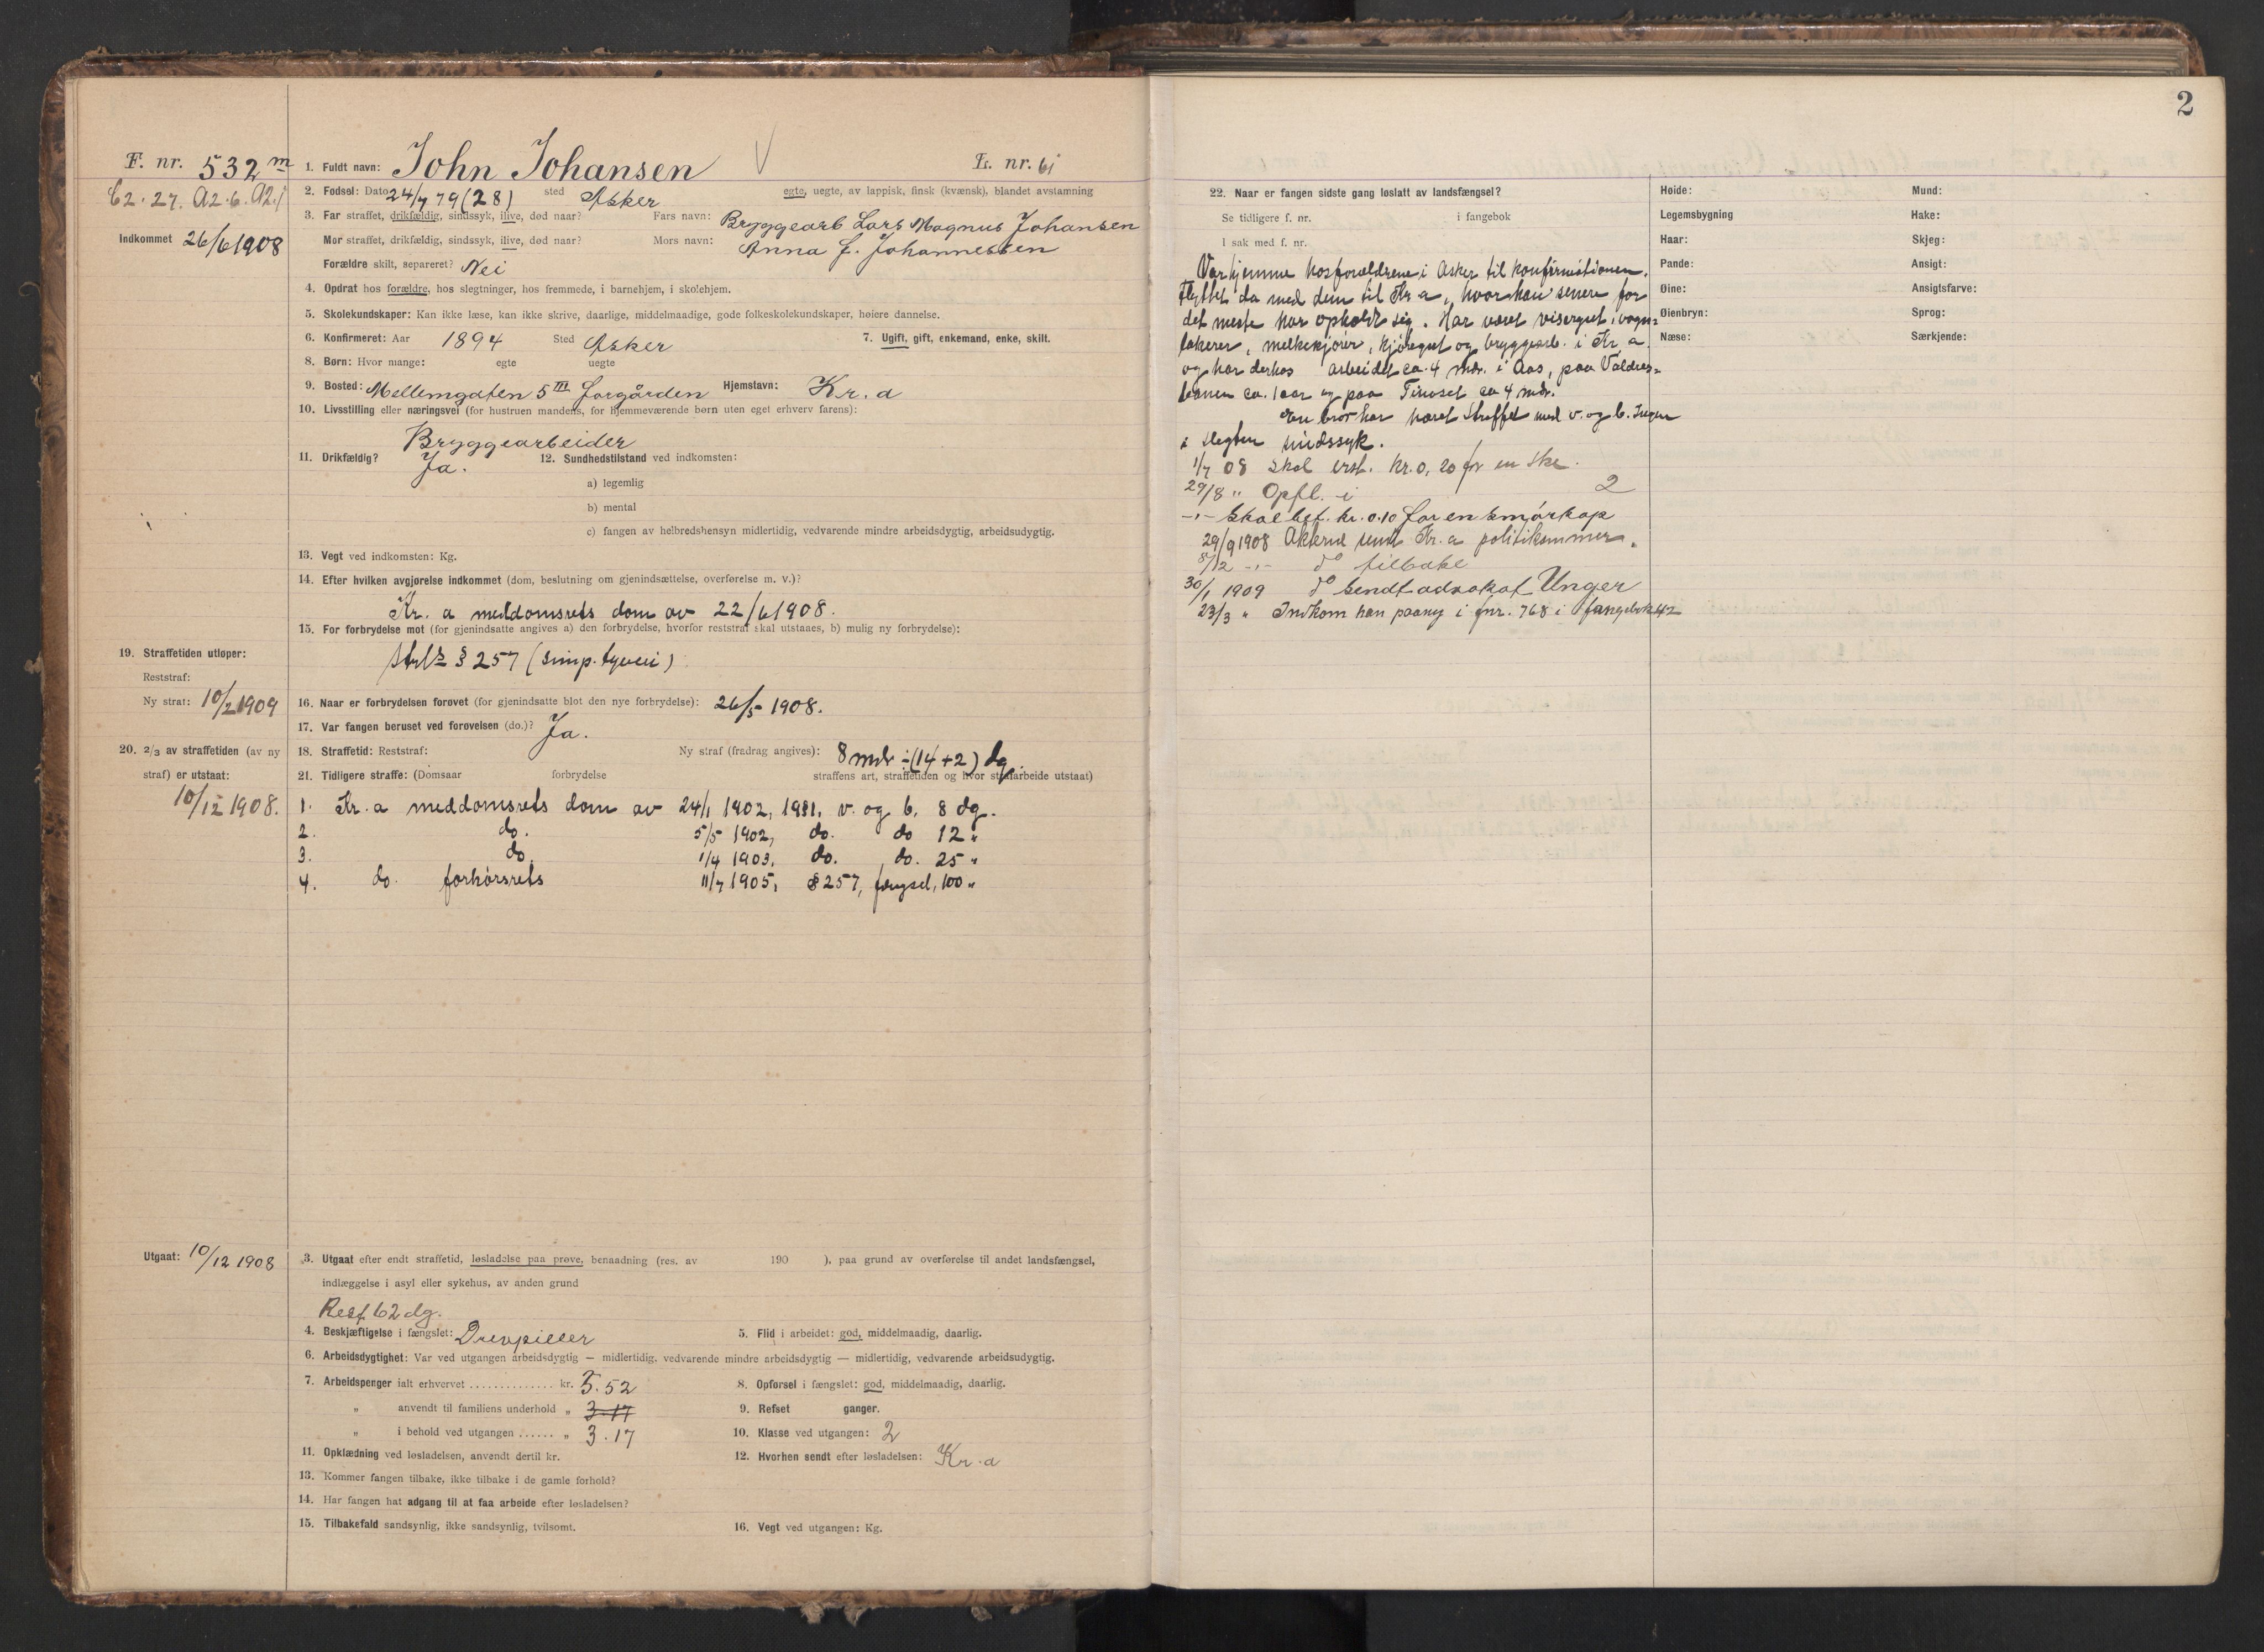 F. nr. 532 m
C2. 27. A2. 6. A2. j
Indkommet 26/6 1908
1. Fuldt navn: John Johansen V L. nr. 61
2. Fødsel: Dato 24/7 79 (28) sted Asker egte, uegte, av lappisk, finsk (kvænsk), blandet avstamning
3. Far straffet, drikfældig, sindssyk, ilive, død naar? Fars navn: Bryggearb Lars Magnus Johansen
Mor straffet, drikfældig, sindssyk, ilive, død naar? Mors navn: Anna F. Johannessen
Forældre skilt, separeret? Nei
4. Opdrat hos forældre, hos slegtninger, hos fremmede, i barnehjem, i skolehjem.
5. Skolekundskaper: Kan ikke læse, kan ikke skrive, daarlige, middelmaadige, gode folkeskolekundskaper, høiere dannelse.
6. Konfirmeret: Aar 1894 Sted Asker 7. Ugift, gift, enkemand, enke, skilt.
8. Børn: Hvor mange: egte uegte
9. Bosted: Mellemgaten 5 III forgården Hjemstavn: Kr. a
10. Livsstilling eller næringsvei (for hustruen mandens, for hjemmeværende børn uten eget erhverv farens):
Bryggearbeider
11. Drikfældig? Ja. 12. Sundhedstilstand ved indkomsten:
a) legemlig
b) mental
c) fangen av helbredshensyn midlertidig, vedvarende mindre arbeidsdygtig, arbeidsudygtig.
13. Vegt ved indkomsten: Kg.
14. Efter hvilken avgjørelse indkommet (dom, beslutning om gjenindsættelse, overførelse m. v.)?
Kr. a meddomsrets dom av 22/6 1908.
15. For forbrydelse mot (for gjenindsatte angives a) den forbrydelse, hvorfor reststraf skal utstaaes, b) mulig ny forbrydelse):
19. Straffetiden utløper:
Strl § 257 (simp. tyveri)
Reststraf:
Ny straf: 10/2 1909
16. Naar er forbrydelsen forøvet (for gjenindsatte blot den nye forbrydelse): 26/5 1908.
17. Var fangen beruset ved forøvelsen (do.)? Ja.
20. 2/3 av straffetiden (av ny
straf) er utstaat:
10/12 1908.
18. Straffetid: Reststraf: Ny straf (fradrag angives): 8 mdr ÷ (14 + 2) dg.
21. Tidligere straffe: (Domsaar forbrydelse straffens art, straffetiden og hvor strafarbeide utstaat)
1. Kr. a meddomsrets dom av 24/1 1902, v. og b. 8 dg.
2. do. 5/5 1902, do. do 12 "
3. do. 1/4 1903, do. do. 25 "
4. do. forhørsrets 11/7 1905, § 257, fængsel, 100 "
Utgaat: 10/12 1908
3. Utgaat efter endt straffetid, løsladelse paa prøve, benaadning (res. av 190 ), paa grund av overførelse til andet landsfængsel,
indlæggelse i asyl eller sykehus, av anden grund
Rest 62 dg.
4. Beskjæftigelse i fængslet: Drevpiller 5. Flid i arbeidet: god, middelmaadig, daarlig.
6. Arbeidsdygtighet: Var ved utgangen arbeidsdygtig — midlertidig, vedvarende mindre arbeidsdygtig — midlertidig, vedvarende arbeidsudygtig.
7. Arbeidspenger ialt erhvervet .............. kr. 5.52 8. Opførsel i fængslet: god, middelmaadig, daarlig.
" anvendt til familiens underhold " 3.17 9. Refset ganger.
" i behold ved utgangen ...... " 3.17 10. Klasse ved utgangen: 2
11. Opklædning ved løsladelsen, anvendt dertil kr. 12. Hvorhen sendt efter løsladelsen: Kr. a
13. Kommer fangen tilbake, ikke tilbake i de gamle forhold?
14. Har fangen hat adgang til at faa arbeide efter løsladelsen?
15. Tilbakefald sandsynlig, ikke sandsynlig, tvilsomt. 16. Vegt ved utgangen: Kg.
2
22. Naar er fangen sidste gang løslatt av landsfængsel?
Se tidligere f. nr. i fangebok
I sak med f. nr.
Var hjemme hos forældrene i Asker til konfirmationen.
Flyttet da med dem til Kr. a, hvor han senere for
det meste har opholdt sig. Har været visergut, vogn-
lakerer, melkekjører, kjøregut og bryggearb. i Kr. a.
og har derhos arbeidet ca. 4 mdr. i Aas, paa Valdres-
banen ca. 1 aar og paa Tinoset ca 4 mdr.
En bror har været straffet med v. og b. Ingen
i slegten sindssyk.
1/7 08 Skal erst. kr. 0,20 for en ske.
29/8 " Opfl. i 2
-"- Skal bet. kr. 0.10 for en smørkop
29/9 1908 Akterne sendt Kr. a politikammer.
8/12 -"- do tilbake
30/1 1909 do sendt advokat Unger
23/3 " Indkom han paany i fnr. 768 i fangebok 42
Høide: Mund:
Legemsbygning Hake:
Haar: Skjeg:
Pande: Ansigt:
Øine: Ansigtsfarve:
Øienbryn: Sprog:
Næse: Særkjende: